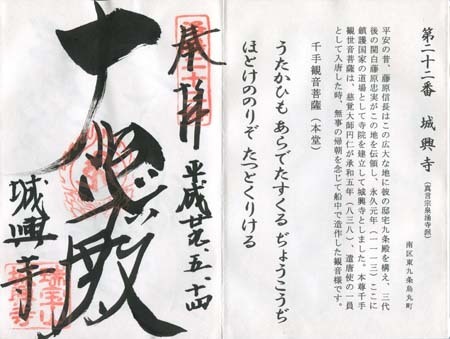 第二十二番　城興寺（真言宗泉涌寺派）
南区東九条烏丸町
平安の昔、藤原信長はこの広大な地に彼の邸宅九条殿を構え、三代
後の関白藤原忠実がこの地を伝領し、永久元年（一一一三）ここに
鎮護国家の道場として寺院を建立して城興寺としました。本尊千手
観世音菩薩は、慈覚大師円仁が承和五年（八三八）、遣唐使の一員
として入唐した時、無事の帰朝を念じて船中で造作した観音様です。
千手観音菩薩（本堂）
うたかひも　あらでたすくる　ぢょうこうぢ
ほとけののりぞ　たつとくりける
奉拝
平成廿九・五・十四
大悲殿
城興寺